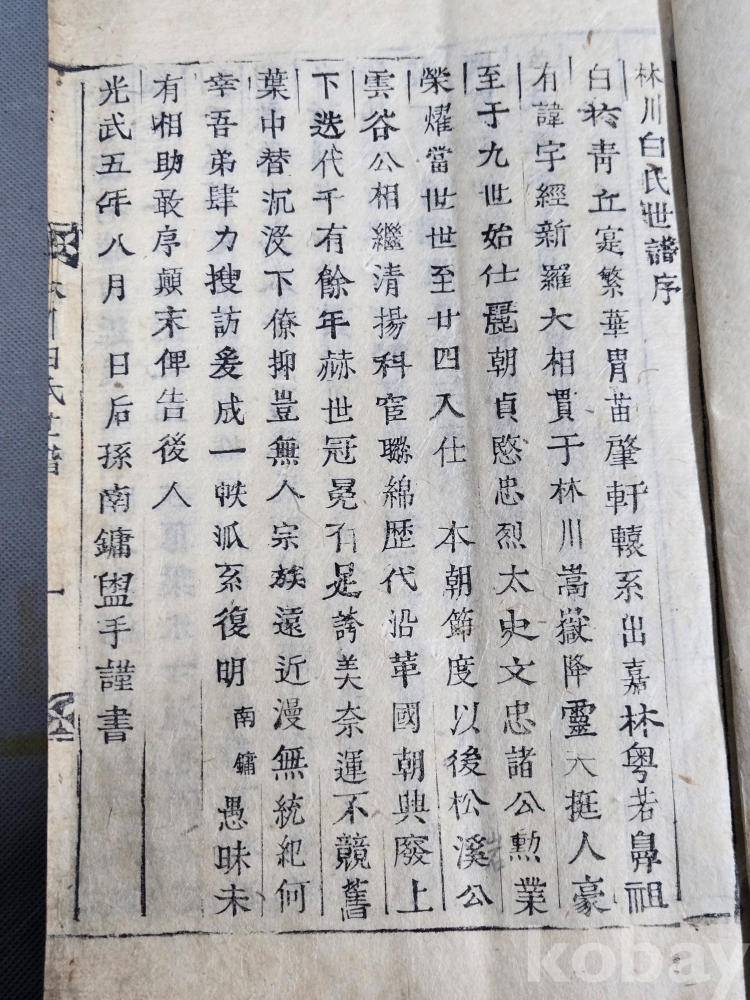 林川白氏世譜序
白於靑丘寔繁華胄苗肇軒轅系出嘉林粤若鼻祖
有諱宇經新羅大相貫于林川嵩嶽降靈大挺人豪
至于九世始仕麗朝貞愍忠烈太史文忠諸公勳業
榮耀當世世至廿四入仕 本朝節度以後松溪公
雲谷公相繼清揚科宦聯綿歴代沿革國朝興廢上
下迭代千有餘年赫世冠冕有足誇美奈運不競舊
葉中替沉沒下僚抑豈無人宗族遠近漫無統紀何
幸吾弟肆力搜訪爰成一帙派系復明南鏞愚昧未
有相助敢序顛末俾告後人
光武五年八月 日后孫南鏞盥手謹書
林川白氏世譜
一
kobay